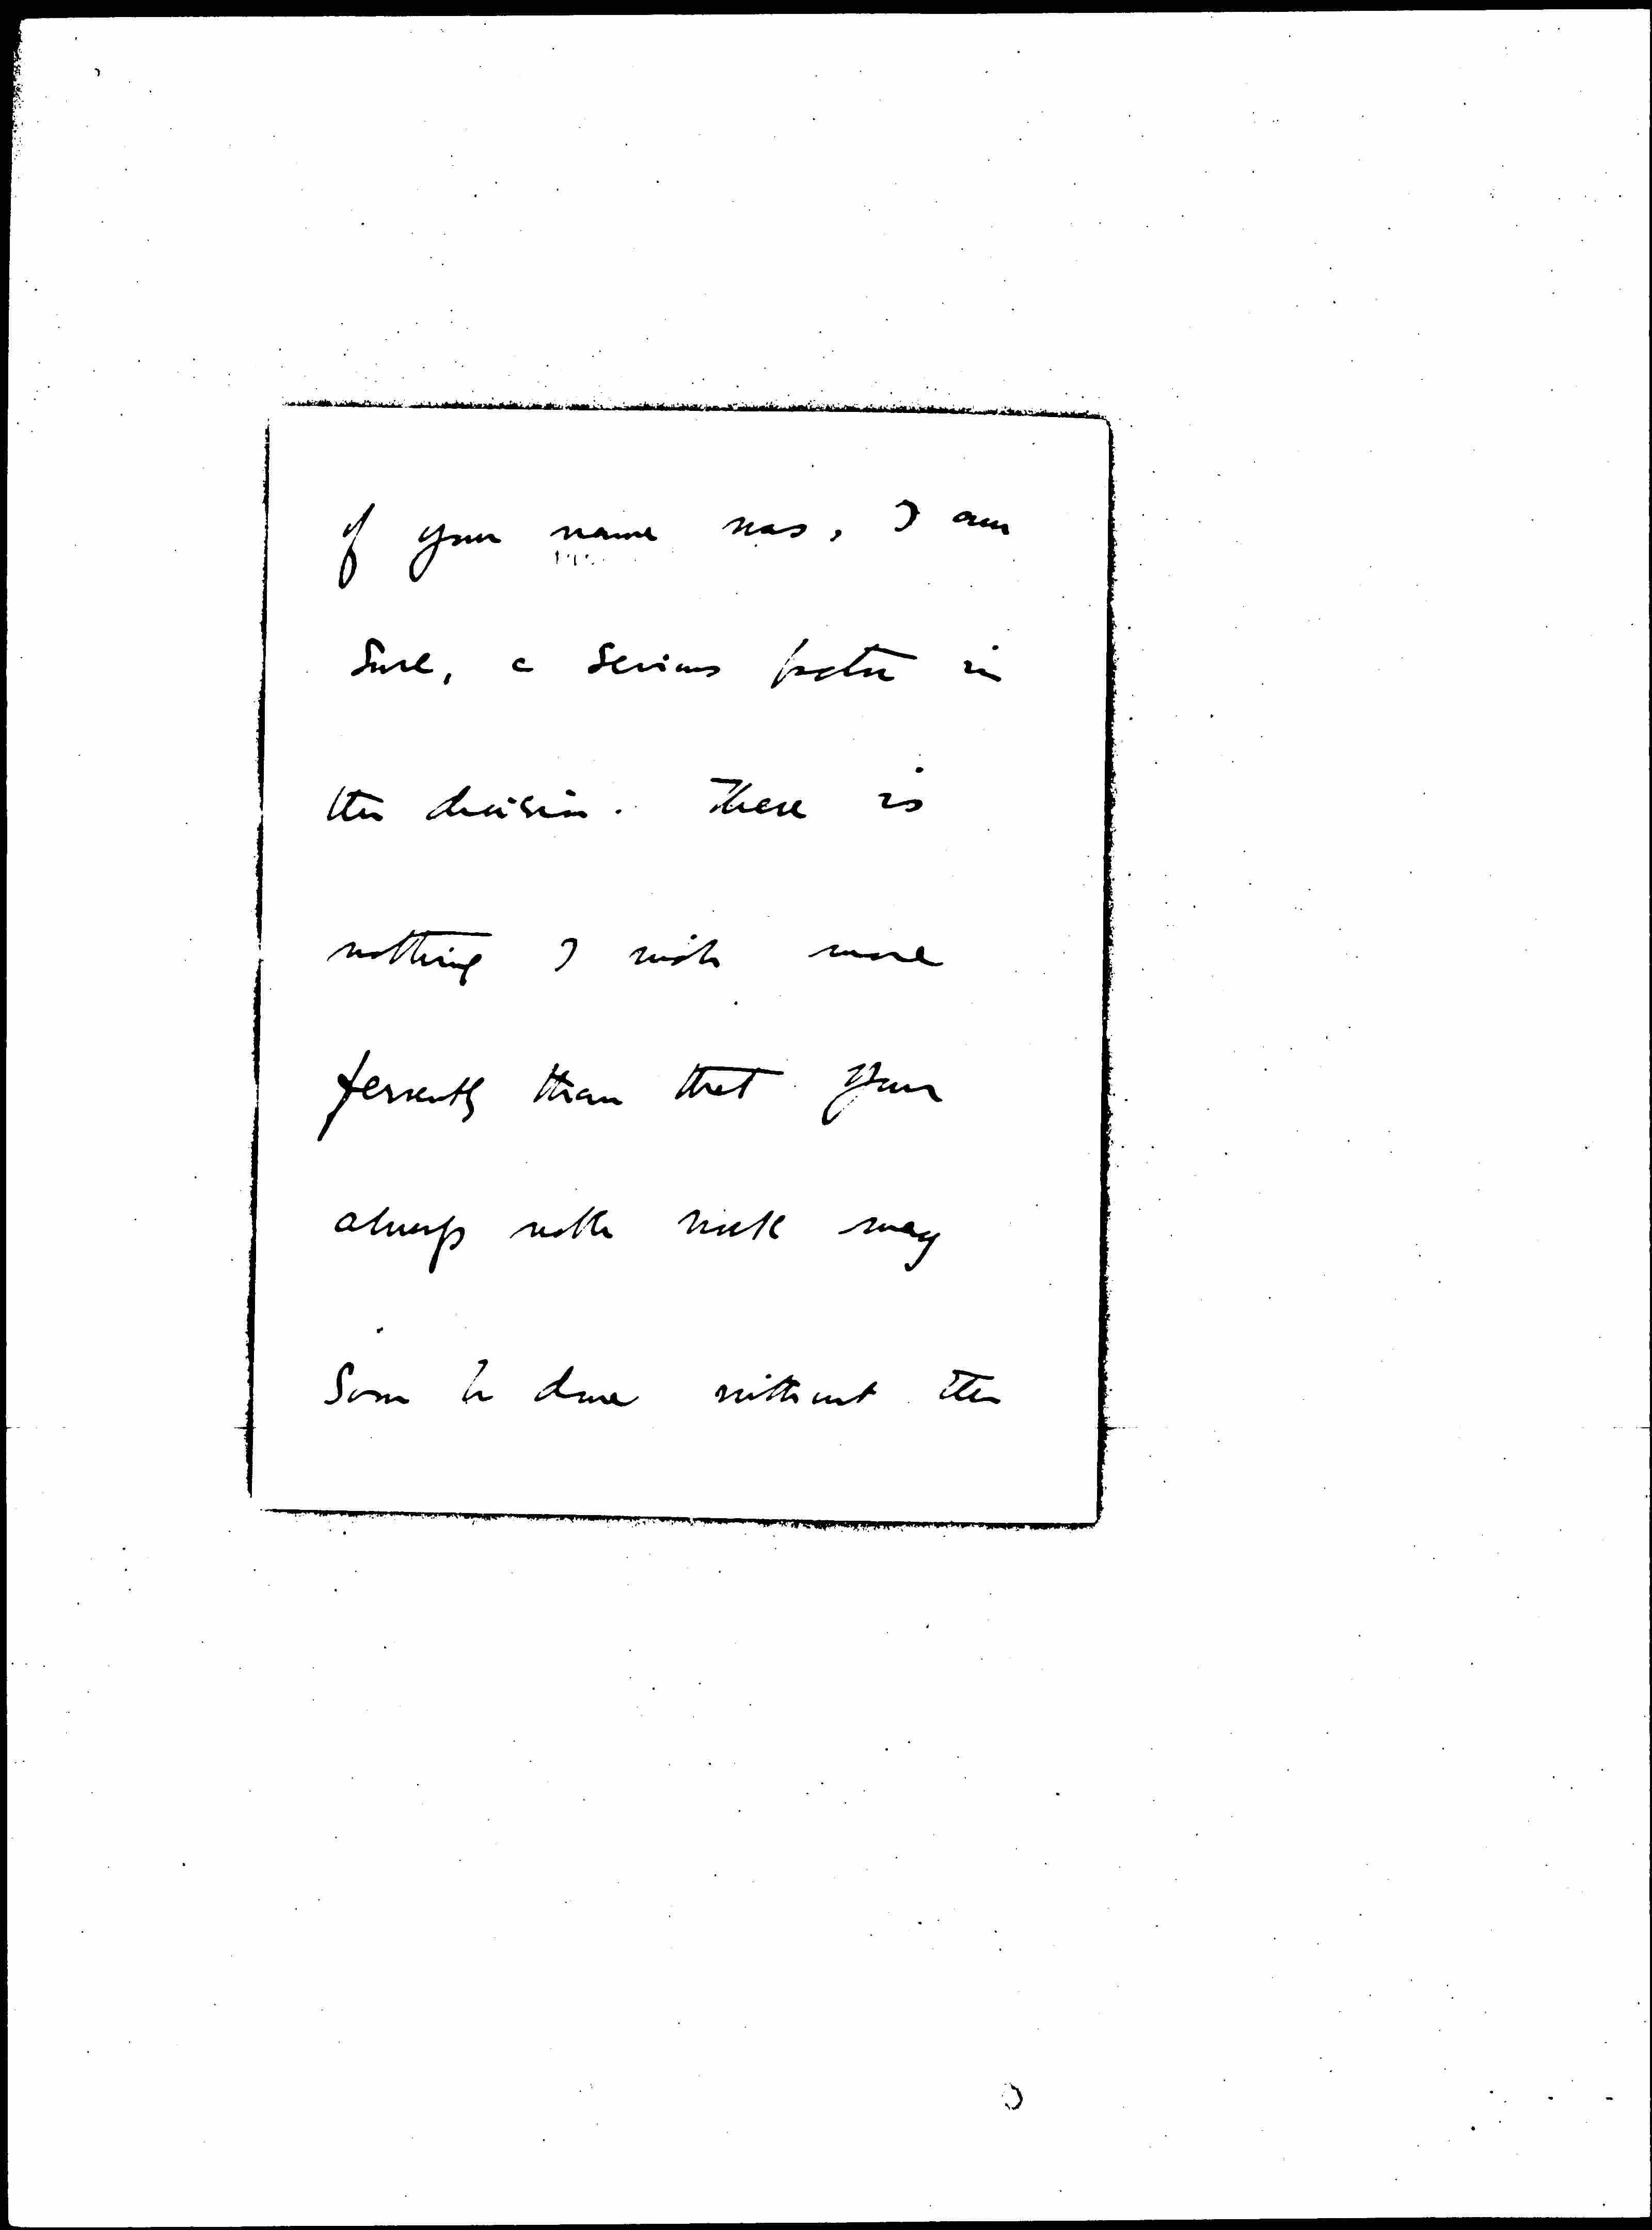 of your name was, I am
sure, a serious factor in
the decision. There is
nothing I wish more
fervently than that your
always noble work may
soon be done without the